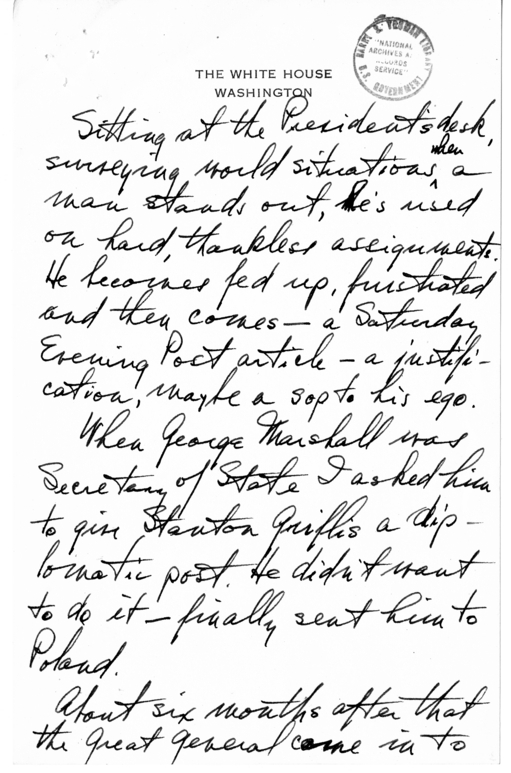 HARRY S. TRUMAN LIBRARY
"NATIONAL
ARCHIVES &
RECORDS
SERVICE"
U.S. GOVERNMENT
THE WHITE HOUSE
WASHINGTON
Sitting at the President's desk,
surveying world situations, when a
man stands out, he's used
on hard, thankless assignments.
He becomes fed up, frustrated
and then comes — a Saturday
Evening Post article — a justifi-
cation, maybe a sop to his ego.
When George Marshall was
Secretary of State I asked him
to give Stanton Griffis a dip-
lomatic post. He didn't want
to do it — finally sent him to
Poland.
About six months after that
the great general came in to